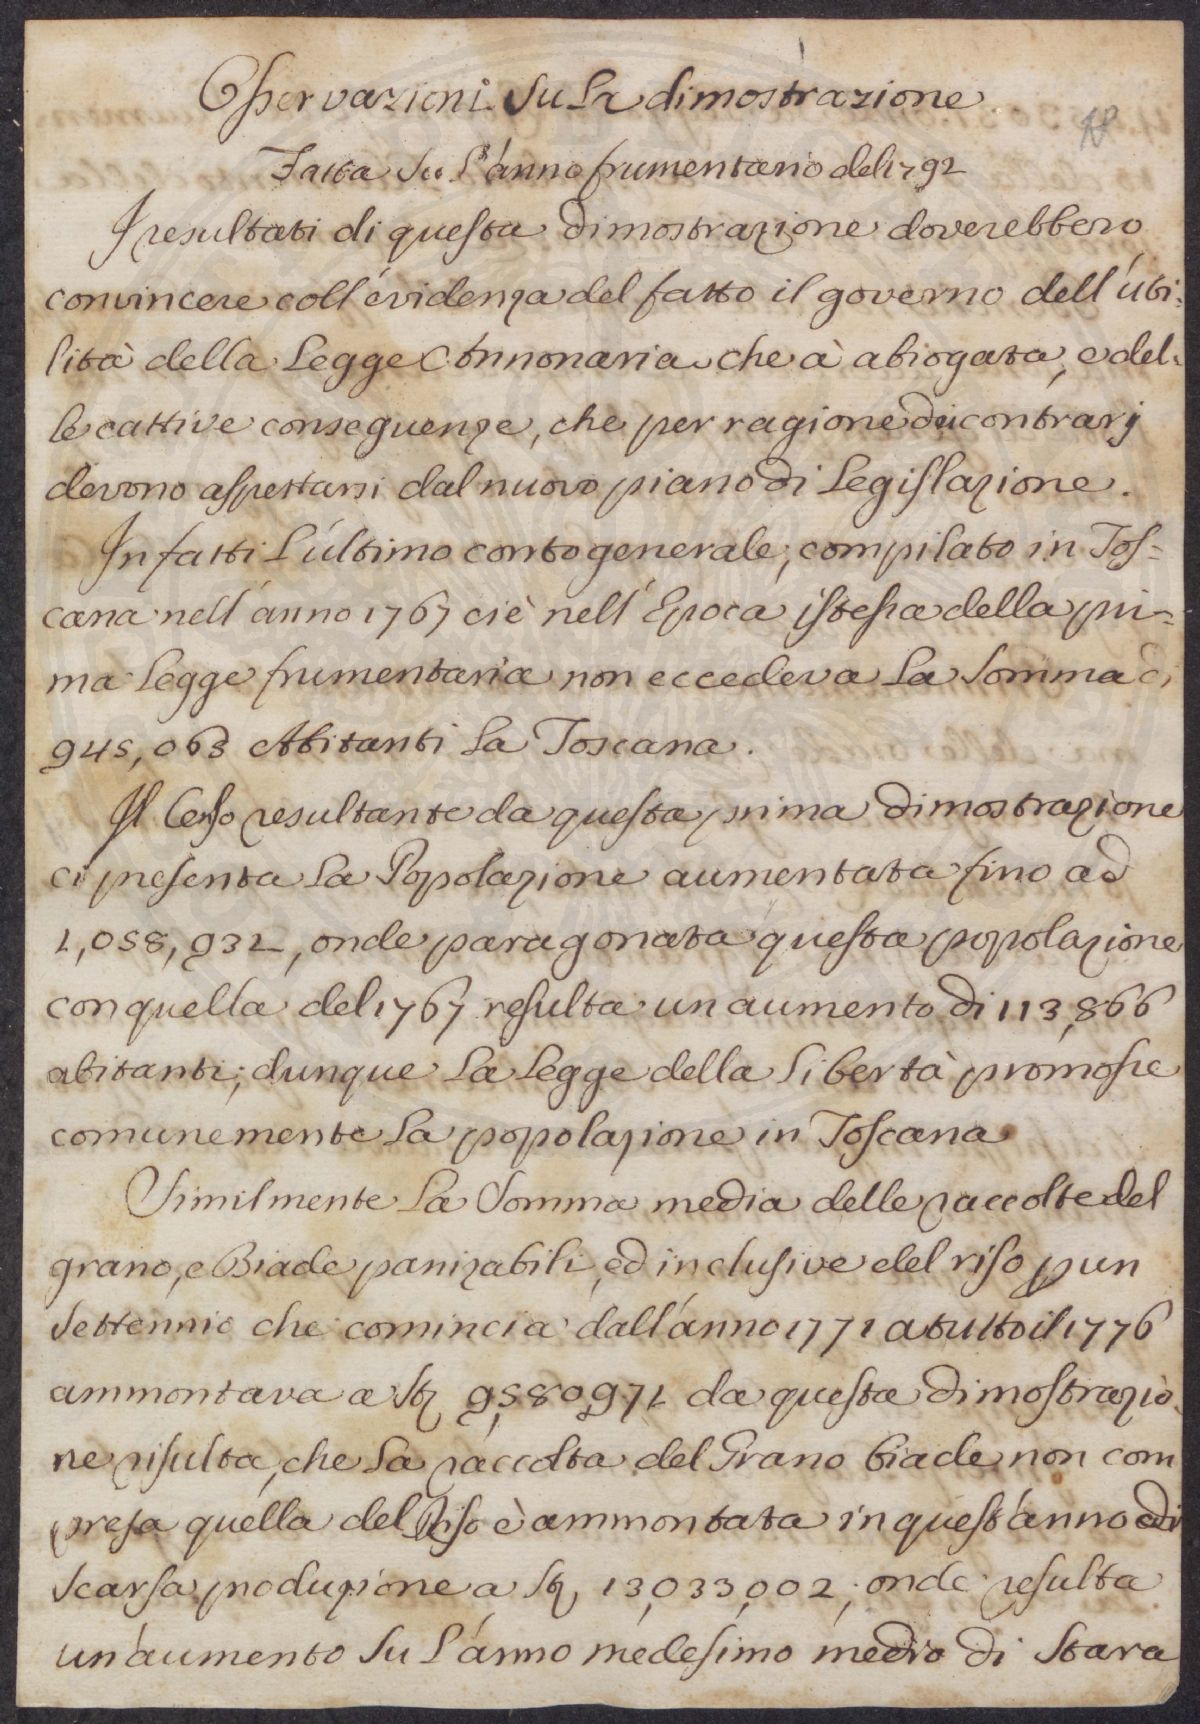 Osservazioni su la dimostrazione
Fatta su l'anno frumentario del 1792
I resultati di questa dimostrazione doverebbero
convincere coll'evidenza del fatto il governo dell'uti:
lità della Legge Annonaria che à abrogata, e del:
le cattive conseguenze, che per ragione dei contrarj
devono aspettarsi dal nuovo piano di Legislazione.
In fatti l'ultimo conto generale, compilato in Tos=
cana nell'anno 1767 ciè nell'Epoca istessa della pri=
ma Legge frumentaria non eccedeva la somma di
945,063 Abitanti la Toscana.
Il Censo resultante da questa prima dimostrazione
ci presenta la Popolazione aumentata fino ad
1,058,932, onde paragonata questa popolazione
con quella del 1767 resulta un aumento di 113,866
abitanti; dunque la Legge della libertà promosse
comunemente la popolazione in Toscana
Similmente la somma media delle raccolte del
grano, e Biade panizabili, ed inclusive del riso p un
settennio che comincia dall'anno 1771 a tutto il 1776
ammontava a Stª 9,580,971 da questa dimostrazio
ne risulta, che la raccolta del Grano biade non com
presa quella del Riso è ammontata in quest'anno di
scarsa produzione a Stª 13,033,002; onde resulta
un aumento su l'anno medesimo medio di Stara